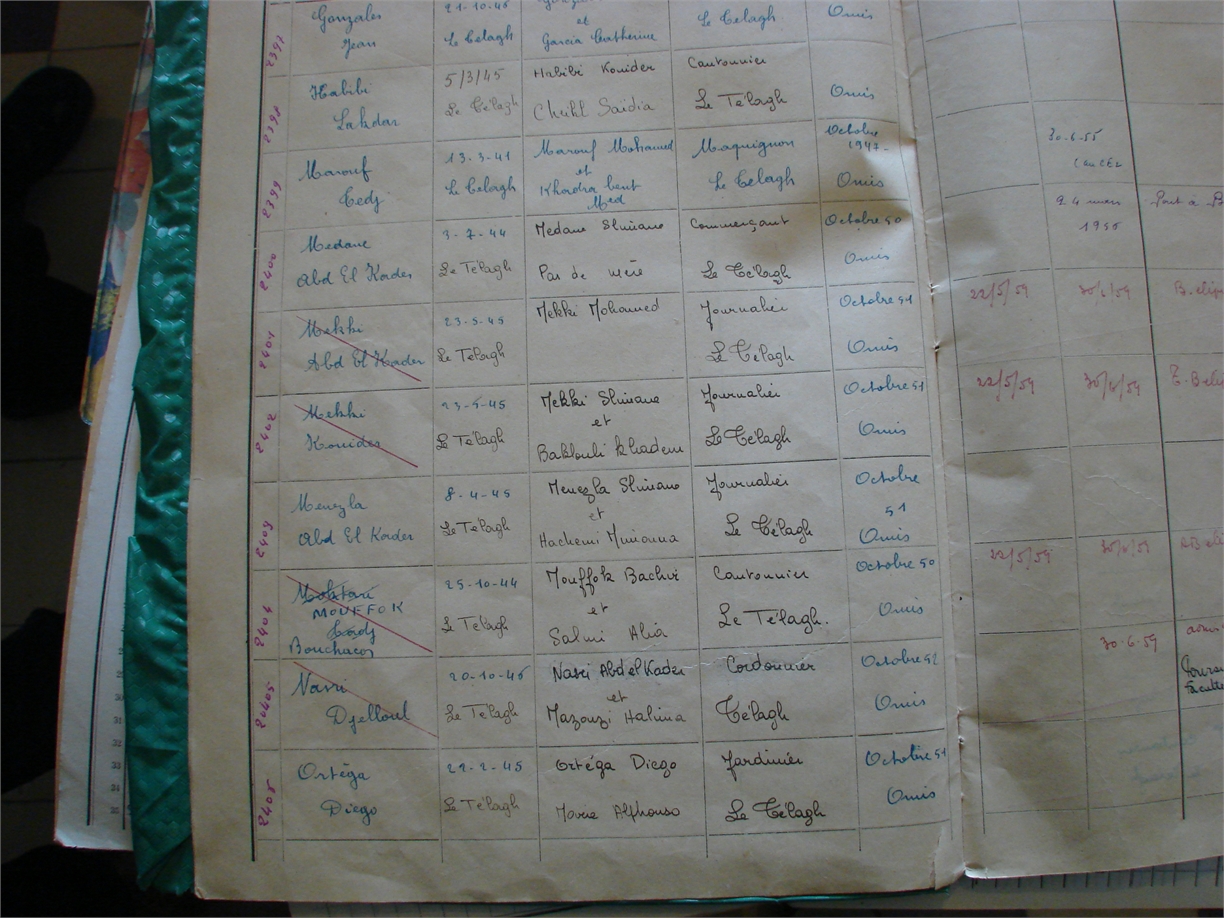 2397 Gonzales 21-10-45 et Le Telagh Omis
Jean Le Telagh Garcia Catherine
2398 Habibi 5/3/45 Habibi Kouider Cantonnier
Lakdar Le Télagh Chikl Saïdia Le Télagh Omis
2399 Marouf 13-3-41 Marouf Mohamed Maquignon Octobre 1947- 30-6-55
Tedj Le Telagh et Le Telagh Omis
Khadra bent Med
2400 Medane 3-7-44 Medane Slimane Commerçant Octobre 50 24 mars 1956
Abd El Kader Le Télagh Pas de mère Le Télagh Omis
2401 Mekki 23-5-45 Mekki Mohamed Journalier Octobre 51 22/5/59 30/6/59
Abd El Kader Le Télagh Le Telagh Omis
2402 Mekki 23-5-45 Mekki Slimane Journalier Octobre 51 22/5/59 30/6/59
et
Kouider Le Télagh Baklouli Khadem Le Télagh Omis
2403 Menezla 8-4-45 Menezla Slimane Journalier Octobre 51
et
Abd El Kader Le Télagh Hachemi Mimouna Le Télagh Omis
2404 Mokhtari 25-10-44 Mouffok Bachir Cantonnier Octobre 50 22/5/59 30/6/59
MOUFFOK et
Hadj Le Telagh Salmi Alia Le Télagh. Omis
Bouchacor
20405 Nasri 20-10-46 Nasri Abdelkader Cordonnier Octobre 52 30-6-59
et
Djelloul Le Télagh Mazouzi Halima Télagh Omis
2405 Ortéga 22-2-45 Ortéga Diego Jardinier Octobre 51
Diego Le Télagh Alphonso Le Télagh Omis